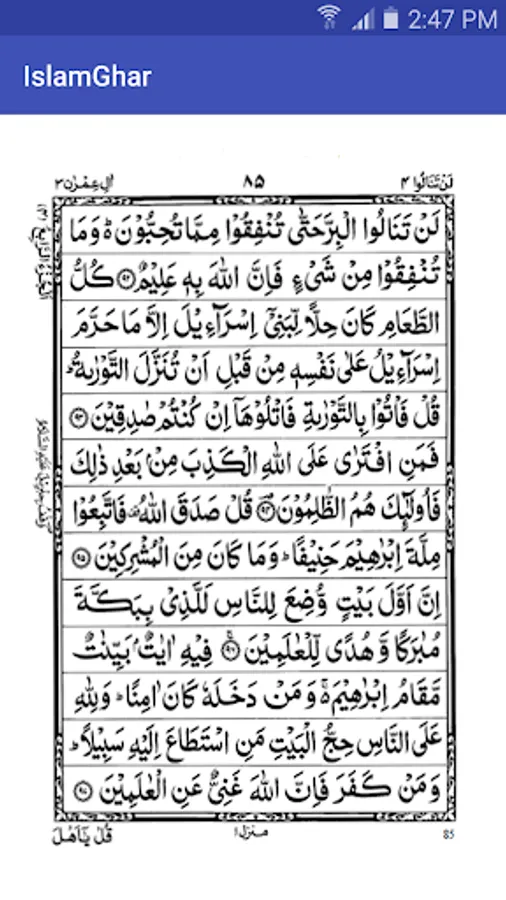 2:47 PM
IslamGhar
لَنْ تَنَالُوا ۴
۸۵
اٰلِ عِمْرٰن ۳
لَنْ تَنَالُوا الْبِرَّ حَتّٰى تُنْفِقُوْا مِمَّا تُحِبُّوْنَ ؕ وَمَا
تُنْفِقُوْا مِنْ شَىْءٍ فَاِنَّ اللّٰهَ بِهٖ عَلِيْمٌ ﴿۹۲﴾ كُلُّ
الطَّعَامِ كَانَ حِلًّا لِّبَنِىْۤ اِسْرَآءِيْلَ اِلَّا مَا حَرَّمَ
اِسْرَآءِيْلُ عَلٰى نَفْسِهٖ مِنْ قَبْلِ اَنْ تُنَزَّلَ التَّوْرٰىةُ ؕ
قُلْ فَاْتُوْا بِالتَّوْرٰىةِ فَاتْلُوْهَاۤ اِنْ كُنْتُمْ صٰدِقِيْنَ ﴿۹۳﴾
فَمَنِ افْتَرٰى عَلَى اللّٰهِ الْكَذِبَ مِنْۢ بَعْدِ ذٰلِكَ
فَاُولٰٓئِكَ هُمُ الظّٰلِمُوْنَ ﴿۹۴﴾ قُلْ صَدَقَ اللّٰهُ فَاتَّبِعُوْا
مِلَّةَ اِبْرٰهِيْمَ حَنِيْفًا ؕ وَمَا كَانَ مِنَ الْمُشْرِكِيْنَ ﴿۹۵﴾
اِنَّ اَوَّلَ بَيْتٍ وُّضِعَ لِلنَّاسِ لَلَّذِىْ بِبَكَّةَ
مُبٰرَكًا وَّ هُدًى لِّلْعٰلَمِيْنَ ﴿۹۶﴾ فِيْهِ اٰيٰتٌۢ بَيِّنٰتٌ
مَّقَامُ اِبْرٰهِيْمَ ۚ وَ مَنْ دَخَلَهٗ كَانَ اٰمِنًا ؕ وَلِلّٰهِ
عَلَى النَّاسِ حِجُّ الْبَيْتِ مَنِ اسْتَطَاعَ اِلَيْهِ سَبِيْلًا ؕ
وَ مَنْ كَفَرَ فَاِنَّ اللّٰهَ غَنِىٌّ عَنِ الْعٰلَمِيْنَ ﴿۹۷﴾
85
منزل ۱
قُلْ يٰۤاَهْلَ